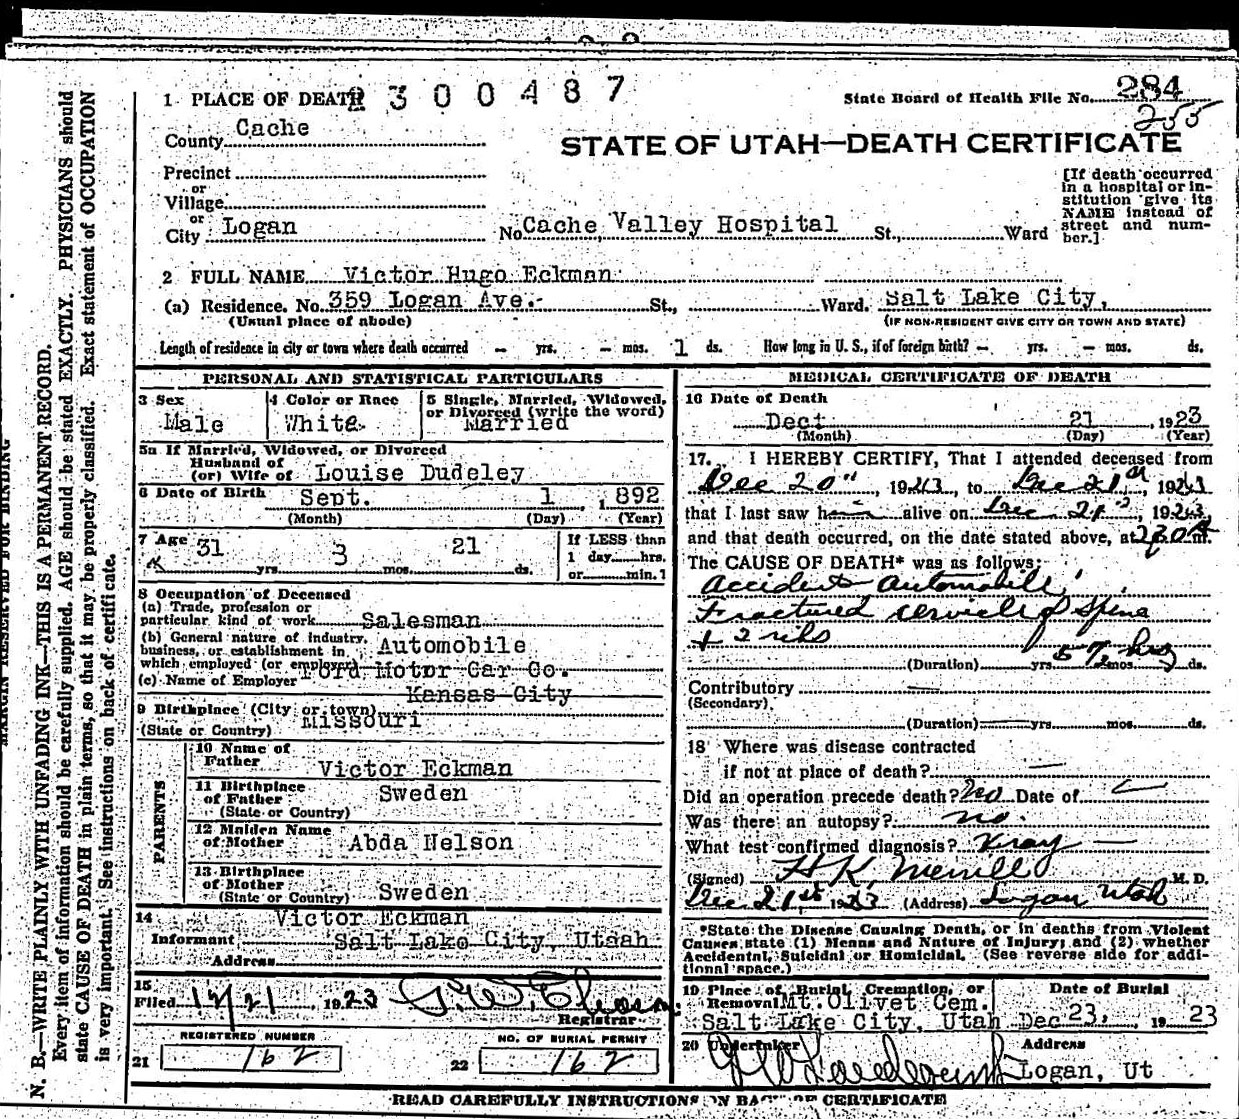 2300487
1 PLACE OF DEATH
State Board of Health File No. 284
255
County Cache
STATE OF UTAH—DEATH CERTIFICATE
Precinct
or
Village
or
City Logan
No. Cache Valley Hospital St., Ward
[If death occurred
in a hospital or in-
stitution give its
NAME instead of
street and num-
ber.]
2 FULL NAME Victor Hugo Eckman
(a) Residence. No. 359 Logan Ave. St., Ward. Salt Lake City,
(Usual place of abode)
(IF NON-RESIDENT GIVE CITY OR TOWN AND STATE)
Length of residence in city or town where death occurred - yrs. - mos. 1 ds. How long in U. S., if of foreign birth? - yrs. - mos. ds.
PERSONAL AND STATISTICAL PARTICULARS
3 Sex
Male
4 Color or Race
White
5 Single, Married, Widowed,
or Divorced (write the word)
Married
5a If Married, Widowed, or Divorced
Husband of
(or) Wife of Louise Dudeley
6 Date of Birth Sept. 1 , 1892
(Month) (Day) (Year)
7 Age 31 yrs. 3 mos. 21 ds.
If LESS than
1 day hrs.
or min.?
8 Occupation of Deceased
(a) Trade, profession or
particular kind of work Salesman
(b) General nature of industry,
business, or establishment in
which employed (or employer) Automobile
(c) Name of Employer Ford Motor Car Co.
Kansas City
9 Birthplace (City or town)
Missouri
(State or Country)
PARENTS
10 Name of
Father Victor Eckman
11 Birthplace
of Father Sweden
(State or Country)
12 Maiden Name
of Mother Abda Nelson
13 Birthplace
of Mother
(State or Country) Sweden
14 Victor Eckman
Informant Salt Lake City, Utaah
Address
15
Filed 12/21, 1923
Registrar
REGISTERED NUMBER
21 162
NO. OF BURIAL PERMIT
22 162
MEDICAL CERTIFICATE OF DEATH
16 Date of Death
Dec. 21 , 1923
(Month) (Day) (Year)
17. I HEREBY CERTIFY, That I attended deceased from
Dec 20", 1923, to Dec 21st, 1923
that I last saw him alive on Dec. 21st, 1923,
and that death occurred, on the date stated above, at m.
The CAUSE OF DEATH* was as follows:
Accident Automobile
Fractured cervicle of spine
+ 2 ribs
(Duration) yrs. 5 1/2 mos. hrs ds.
Contributory
(Secondary)
(Duration) yrs. mos. ds.
18 Where was disease contracted
if not at place of death?
Did an operation precede death? No Date of
Was there an autopsy? no.
What test confirmed diagnosis? Xray
(Signed) H K Merrill M. D.
Dec 21st 1923 (Address) Logan Utah
*State the Disease Causing Death, or in deaths from Violent
Causes state (1) Means and Nature of Injury; and (2) whether
Accidental, Suicidal or Homicidal. (See reverse side for addi-
tional space.)
19 Place of Burial, Cremation, or
Removal Mt. Olivet Cem.
Salt Lake City, Utah
Date of Burial
Dec 23, , 19 23
20 Undertaker
Address
Logan, Ut
READ CAREFULLY INSTRUCTIONS ON BACK OF CERTIFICATE
MARGIN RESERVED FOR BINDING
N. B.—WRITE PLAINLY WITH UNFADING INK—THIS IS A PERMANENT RECORD.
Every item of information should be carefully supplied. AGE should be stated EXACTLY. PHYSICIANS should
state CAUSE OF DEATH in plain terms, so that it may be properly classified. Exact statement of OCCUPATION
is very important. See instructions on back of certificate.